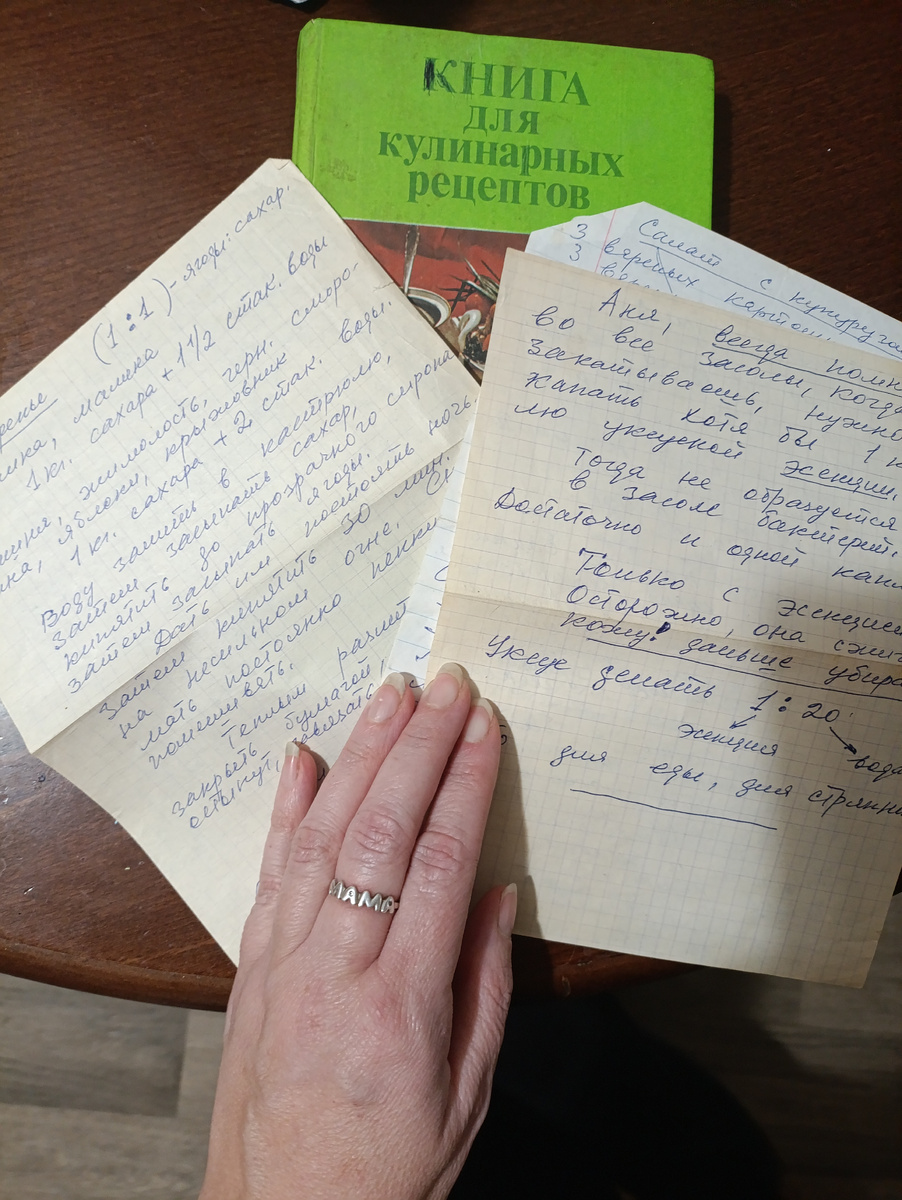 КНИГА
для
кулинарных
рецептов
(1:1) - ягоды: сахар.
малина
1 кг. сахара + 1 1/2 стак. воды
жимолость, черн. сморо-
яблоки, крыжовник
1 кг. сахара + 2 стак. воды.
Воду залить в кастрюлю,
Затем засыпать сахар,
кипятить до прозрачного сиропа
Затем засыпать ягоды.
Дать им постоять ночь,
Затем кипятить 30 мин.
на несильном огне. Сн
мать постоянно пенки
помешивать.
Теплым разлит
закрыть бумагой,
остынут,
Салат с кукуруза
3 вареных картош
3
Аня, всегда помн
во все засолы, когда
закатываешь, нужно
капать хотя бы 1 к
лю уксусной эсенции.
Тогда не образуется
в засоле бактерий.
Достаточно и одной капл
Только с эсенцие
Осторожно, она сжиг
кожу! дальше убира
Уксус делать 1:20
эсенция
вода
для еды, для стряпни
МАМА